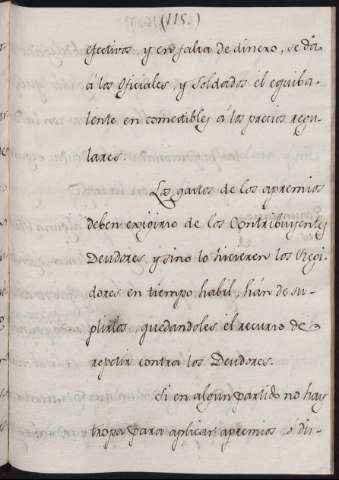 (115.)
efectivos y en falta de dinero, se dá
á los Oficiales, y Soldados el equiba-
lente en comestibles á los precios regu-
lares.
Los gastos de los apremios
deben exigirse de los Contribuyentes
Deudores, y sino lo hicieren los Regi-
dores en tiempo habil, hán de su-
plirlos, quedandoles el recurso de
repetir contra los Deudores.
Si en algun partido no hay
tropa para aplicar apremios, o dis-